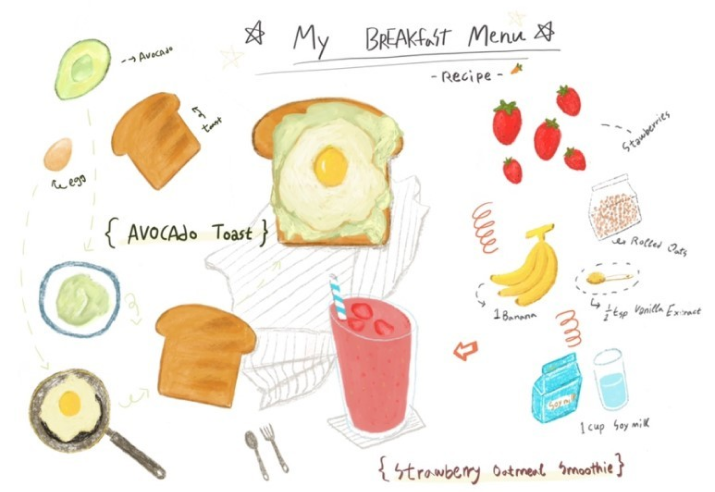 My BREAKfast Menu
- Recipe -
Avocado
toast
egg
{ AVOCAdo Toast }
Stawberries
Rolled Oats
1 Banana
1/2 tsp Vanilla Extract
Soy mi
1 cup Soy milk
{ Strawberry Oatmeal Smoothie }